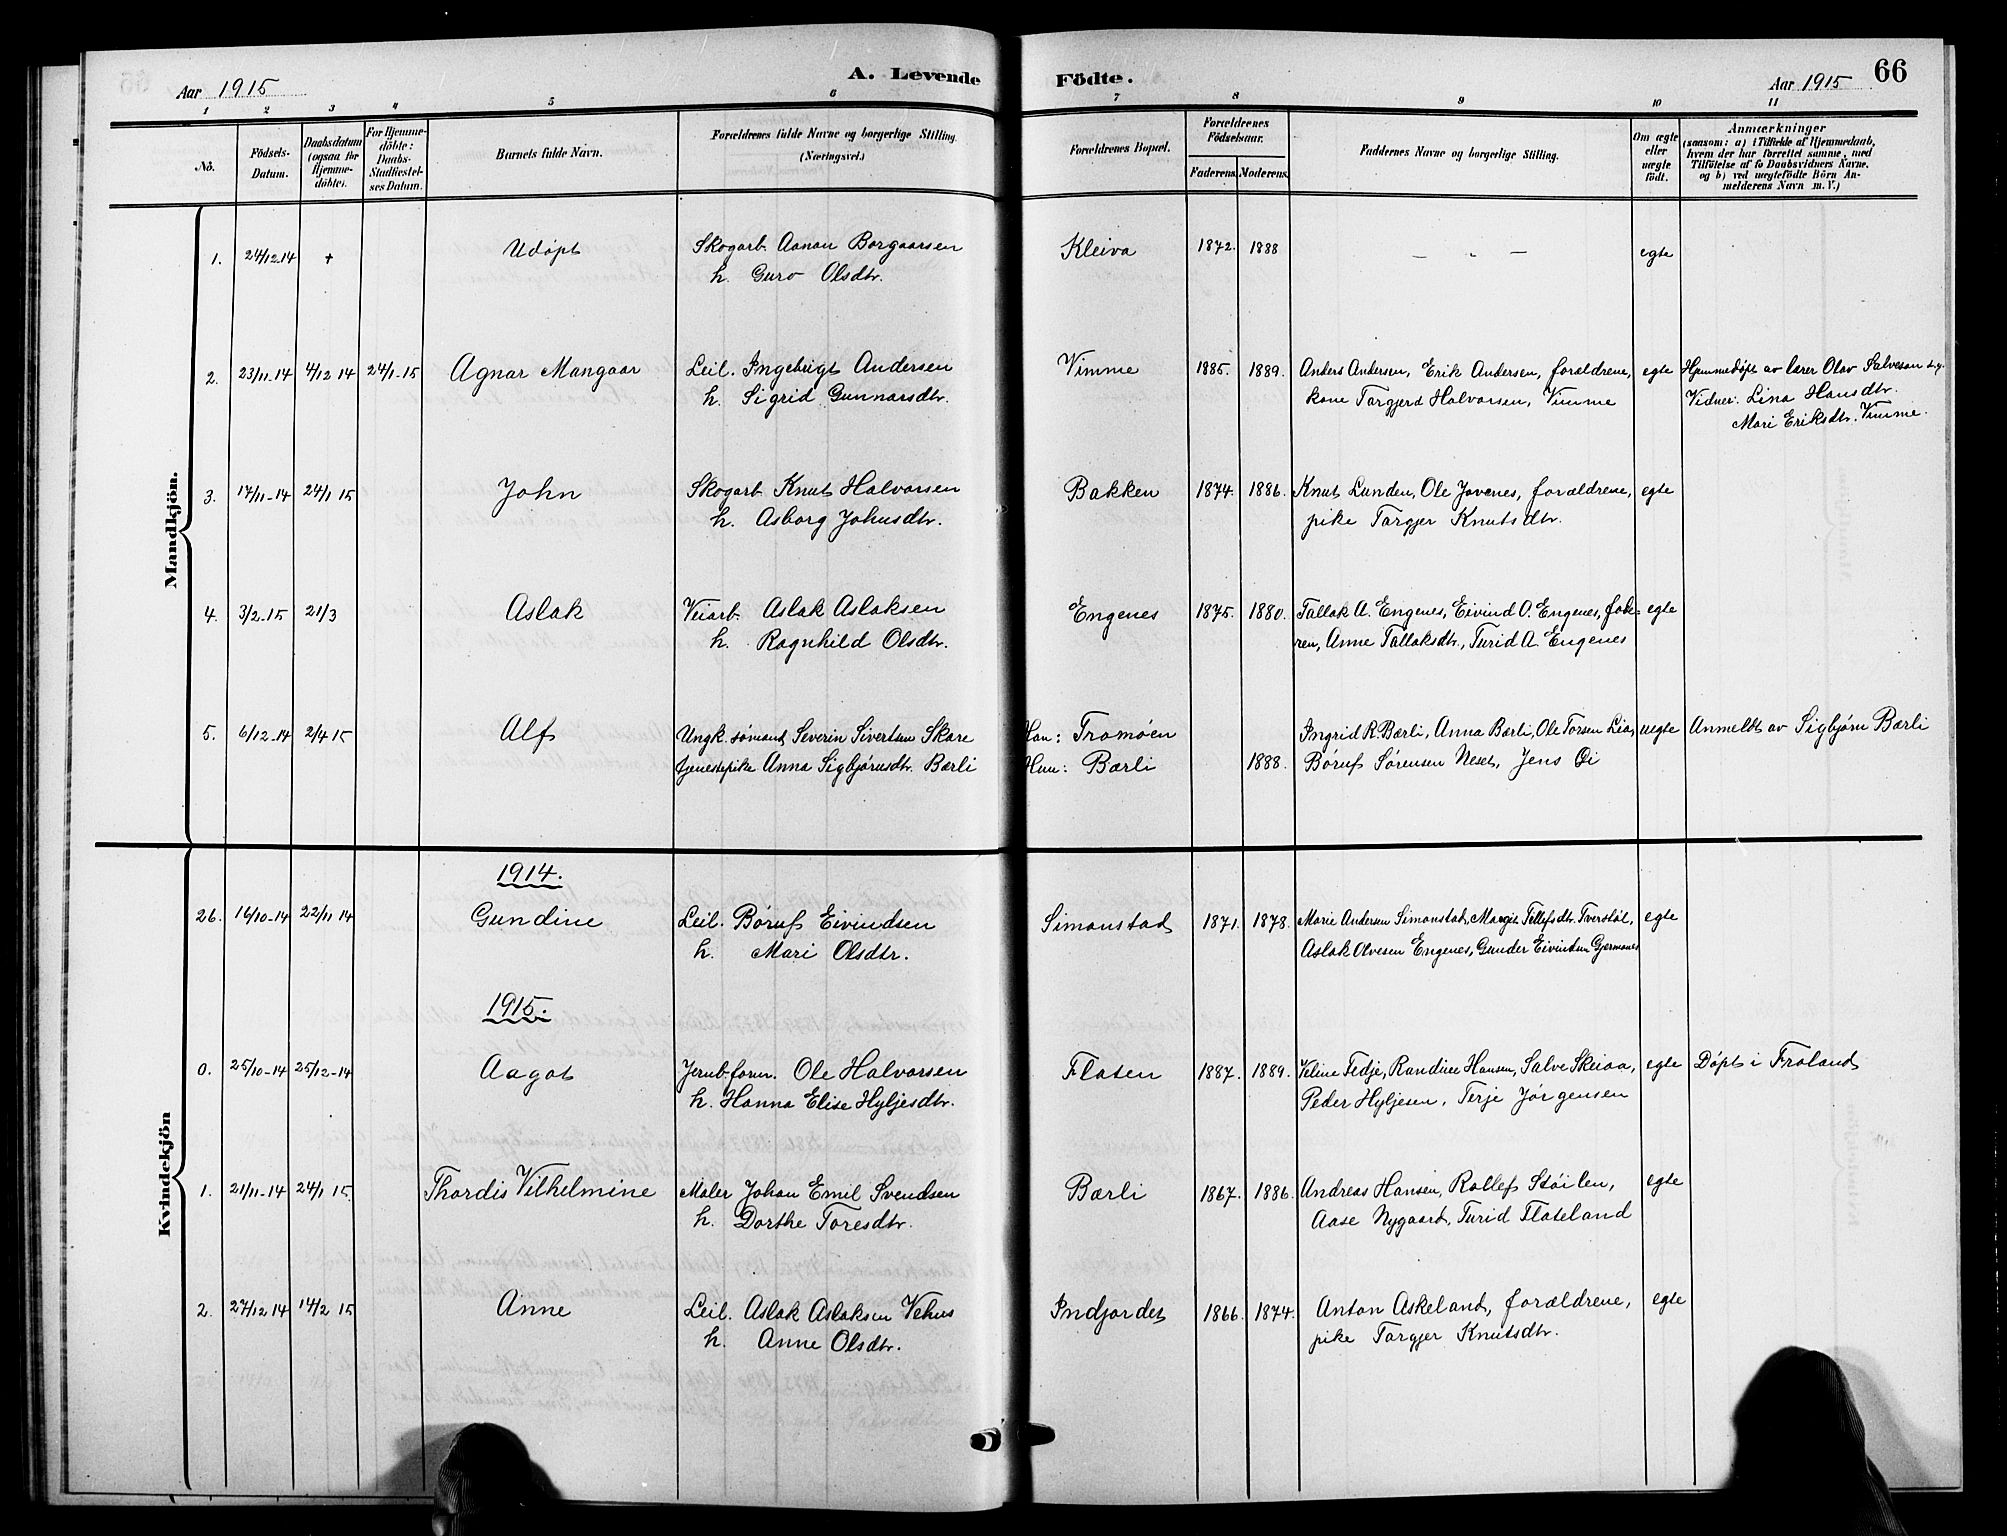 Aar 1915
A. Levende Födte.
Aar 1915
66
1 2 3 4 5 6 7 8 9 10 11
No.
Födsels-
Datum.
Daabsdatum
(ogsaa for
Hjemme-
döbte).
For Hjemme-
döbte:
Daabs-
Stadfæstel-
ses Datum.
Barnets fulde Navn.
Forældrenes fulde Navne og borgerlige Stilling.
(Næringsvei.)
Forældrenes Bopæl.
Forældrenes
Födselsaar.
Faderens. Moderens.
Faddernes Navne og borgerlige Stilling.
Om ægte
eller
uægte
födt.
Anmærkninger
(saasom: a) i Tilfælde af Hjemmedaab,
hvem der har forrettet samme, med
Tilföielse af to Daabsvidners Navne.
og b) ved uægtefödte Börn An-
melderens Navn m. V.)
Mandkjön.
1. 24/12.14 + Udøpt Skogarb. Aanon Borgaarsen Kleiva 1872. 1888 – „ – egte
h. Guro Olsdtr.
2. 23/11.14 4/12 14 24/1-15 Agnar Mangaar Leil. Ingebrigt Andersen Vimme 1885. 1889. Anders Andersen, Erik Andersen, forældrene, egte Hjemmedøpt av lærer Olav Salvesen
h. Sigrid Gunnarsdtr. kone Torgjerd Halvorsen, Vimme Vidner: Lina Hansdtr.
Mari Eriksdtr. Vimme.
3. 17/11-14 24/1 15 John Skogarb. Knut Halvorsen Bakken 1874. 1886. Knut Lunden, Ole Jovenes, forældrene, egte
h. Asborg Johnsdtr. pike Torgjer Knutsdtr.
4. 3/2-15 21/3 Aslak Veiarb. Aslak Aslaksen Engenes 1875. 1880. Tallak A. Engenes, Eivind O. Engenes, fok- egte
h. Ragnhild Olsdtr. ren, Anne Tallaksdtr., Turid A. Engenes
5. 6/12-14 2/4 15 Alf Ungk. sømand Severin Sivertsen Skare Han: Tromøen Ingrid R. Bærli, Anna Bærli, Ole Torsen Lia, uegte Anmeldt av Sigbjørn Bærli
tjenestepike Anna Sigbjørnsdtr. Bærli Hun: Bærli 1888. Børuf Sørensen Neset, Jens Øi
Kvindekjön
1914.
26. 16/10-14 22/11 14 Gundine Leil. Børuf Eivindsen Simonstad 1871. 1878. Marie Andersen Simonstad, Margit Tellefsdtr. Tverstøl, egte
h. Mari Olsdtr. Aslak Olvesen Engenes, Gunder Eivindsen Gjermones
1915.
0. 25/10-14 25/12-14 Aagot Jernb.form. Ole Halvorsen Flaten 1887. 1889. Veline Tedje, Randine Hansen, Salve Skeiaa, egte Døpt i Froland
h. Hanna Elise Hyljesdtr. Peder Hyljesen, Terje Jørgensen
1. 21/11-14 24/1 15. Thordis Vilhelmine Maler Johan Emil Svendsen Bærli 1867. 1886. Andreas Hansen, Rollef Støilen, egte
h. Dorthe Toresdtr. Aase Nygaard, Turid Flateland
2. 27/12 14 14/2 15 Anne Leil. Aslak Aslaksen Vehus Indjordet 1866. 1874. Anton Askeland, forældrene, egte
h. Anne Olsdtr. pike Torgjer Knutsdtr.